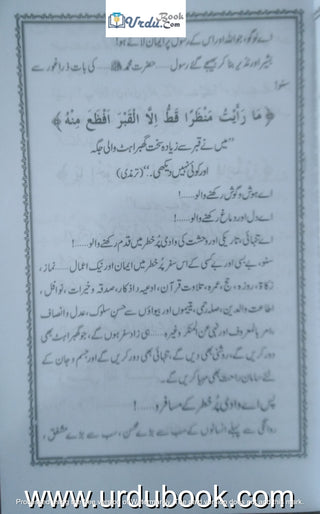 UrduBook.Com
اے لوگو، جو اللہ اور اس کے رسول پر ایمان لائے ہو!
بشیر اور نذیر بنا کر بھیجے گئے رسول...... حضرت محمد ﷺ...... کی بات ذرا غور سے
سنو!
﴿ مَا رَأَيْتُ مَنْظَرًا قَطُّ اِلَّا الْقَبْرَ اَفْظَعَ مِنْهُ ﴾
"میں نے قبر سے زیادہ سخت گھبراہٹ والی جگہ
اور کوئی نہیں دیکھی۔" (ترمذی)
اے ہوش و گوش رکھنے والو......!
اے دل اور دماغ رکھنے والو......!
اے تنہائی، تاریکی اور وحشت کی وادی پُر خطر میں قدم رکھنے والو......!
سنو، بے بسی اور بے کسی کے اس سفر پُر خطر میں ایمان اور نیک اعمال...... نماز،
زکاۃ، روزہ، حج، عمرہ، تلاوت قرآن، ادعیہ و اذکار، صدقہ و خیرات، نوافل،
اطاعت والدین، صلہ رحمی، یتیموں اور بیواؤں سے حسن سلوک، عدل و انصاف
، امر بالمعروف اور نہی عن المنکر وغیرہ...... ہی زاد سفر ہوں گے، جو گھبراہٹ بھی
دور کریں گے، روشنی بھی دیں گے، تنہائی بھی دور کریں گے اور جسم و جان کے
لئے سامان راحت بھی مہیا کریں گے۔
پس اے وادی پُر خطر کے مسافرو......!
روانگی سے پہلے انسانوں کے سب سے بڑے محسن، سب سے بڑے مشفق،
www.urdubook.com